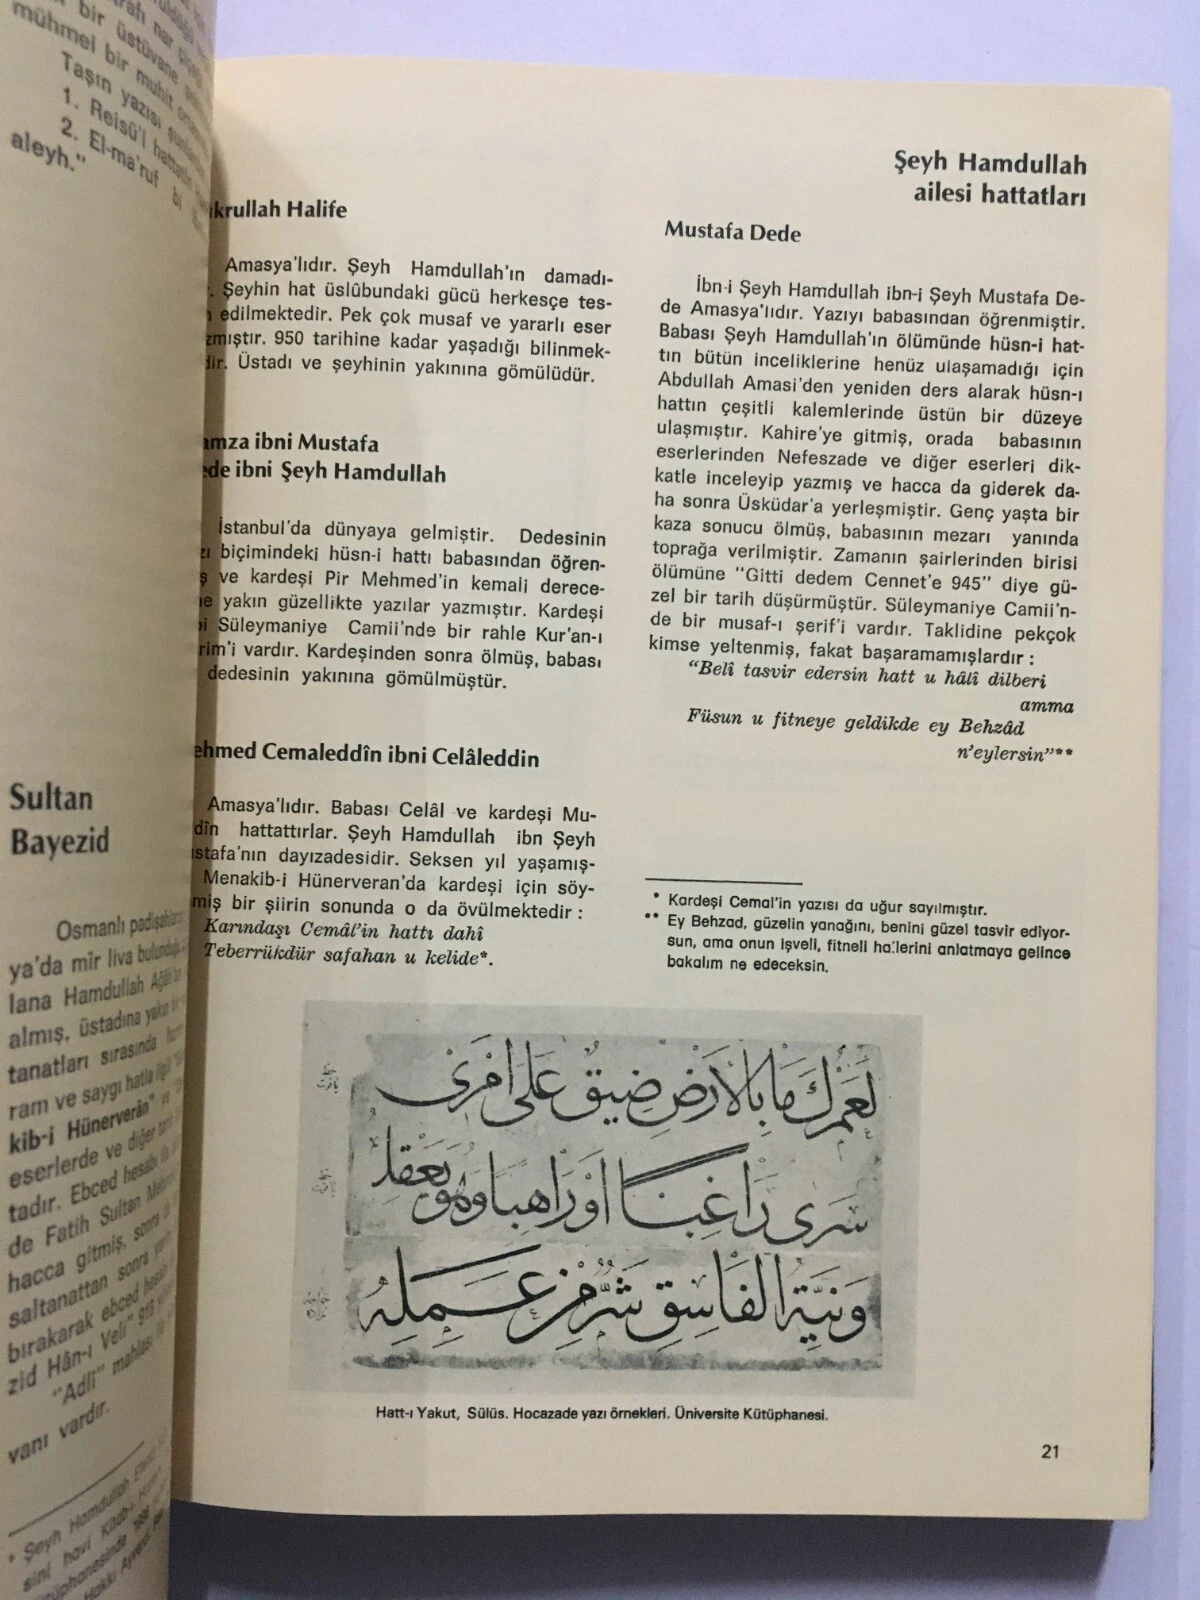 mühmel bir muhit
Taşın yazısı şunlardır
1. Reisü'l hattatin
2. El-ma'ruf bi
aleyh."
Sultan
Bayezid
Osmanlı padişahları
ya'da mîr liva bulunduğu
lana Hamdullah Ağdan
almış, üstadına yakın bir
tanatları sırasında
ram ve saygı hatla ilgili
kib-i Hünerverân" ve
eserlerde ve diğer
tadır. Ebced hesabı ile
de Fatih Sultan Mehmed
hacca gitmiş, sonra
saltanattan sonra
bırakarak ebced hesabı
zid Hân-ı Veli" 918
"Adlî" mahlası ile
vanı vardır.
* Şeyh Hamdullah
sini havi Kitab-ı
Hakkı
Şeyh Hamdullah
ailesi hattatları
krullah Halife
Amasya'lıdır. Şeyh Hamdullah'ın damadı-
Şeyhin hat üslûbundaki gücü herkesçe tes-
edilmektedir. Pek çok musaf ve yararlı eser
zmıştır. 950 tarihine kadar yaşadığı bilinmek-
dir. Üstadı ve şeyhinin yakınına gömülüdür.
amza ibni Mustafa
ede ibni Şeyh Hamdullah
İstanbul'da dünyaya gelmiştir. Dedesinin
zı biçimindeki hüsn-i hattı babasından öğren-
ş ve kardeşi Pir Mehmed'in kemali derece-
ne yakın güzellikte yazılar yazmıştır. Kardeşi
bi Süleymaniye Camii'nde bir rahle Kur'an-ı
rim'i vardır. Kardeşinden sonra ölmüş, babası
dedesinin yakınına gömülmüştür.
ehmed Cemaleddîn ibni Celâleddin
Amasya'lıdır. Babası Celâl ve kardeşi Mu-
dîn hattattırlar. Şeyh Hamdullah ibn Şeyh
stafa'nın dayızadesidir. Seksen yıl yaşamış-
Menakib-i Hünerveran'da kardeşi için söy-
miş bir şiirin sonunda o da övülmektedir :
Karındaşı Cemâl'in hattı dahî
Teberrükdür safahan u kelide*.
Mustafa Dede
İbn-i Şeyh Hamdullah ibn-i Şeyh Mustafa De-
de Amasya'lıdır. Yazıyı babasından öğrenmiştir.
Babası Şeyh Hamdullah'ın ölümünde hüsn-i hat-
tın bütün inceliklerine henüz ulaşamadığı için
Abdullah Amasi'den yeniden ders alarak hüsn-ı
hattın çeşitli kalemlerinde üstün bir düzeye
ulaşmıştır. Kahire'ye gitmiş, orada babasının
eserlerinden Nefeszade ve diğer eserleri dik-
katle inceleyip yazmış ve hacca da giderek da-
ha sonra Üsküdar'a yerleşmiştir. Genç yaşta bir
kaza sonucu ölmüş, babasının mezarı yanında
toprağa verilmiştir. Zamanın şairlerinden birisi
ölümüne "Gitti dedem Cennet'e 945" diye gü-
zel bir tarih düşürmüştür. Süleymaniye Camii'n-
de bir musaf-ı şerif'i vardır. Taklidine pekçok
kimse yeltenmiş, fakat başaramamışlardır :
"Belî tasvir edersin hatt u hâlî dilberi
amma
Füsun u fitneye geldikde ey Behzâd
n'eylersin"**
* Kardeşi Cemal'in yazısı da uğur sayılmıştır.
** Ey Behzad, güzelin yanağını, benini güzel tasvir ediyor-
sun, ama onun işveli, fitneli hallerini anlatmaya gelince
bakalım ne edeceksin.
لَعَمْرُكَ مَا بِالْاَرْضِ ضِيقٌ عَلَى امْرِئٍ
سَرَى رَاغِبًا اَوْ رَاهِبًا وَهُوَ يَعْقِلُ
وَنِيَّةُ الْفَاسِقِ شَرٌّ مِنْ عَمَلِهِ
Hatt-ı Yakut, Sülüs. Hocazade yazı örnekleri. Üniversite Kütüphanesi.
21